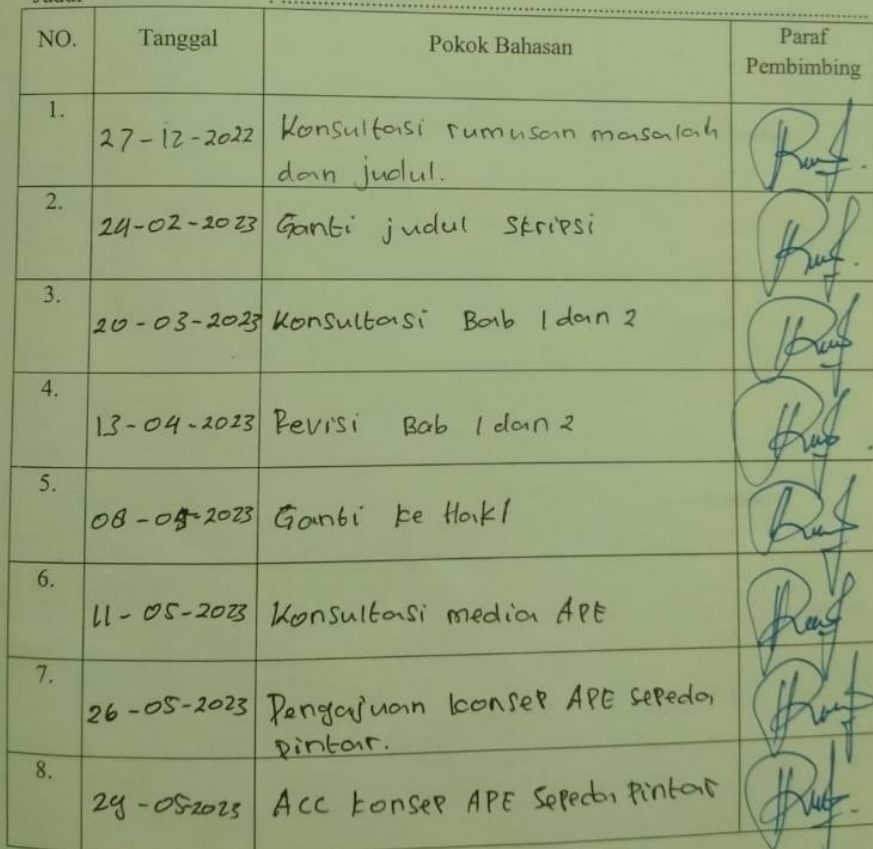 NO. Tanggal Pokok Bahasan Paraf Pembimbing
1. 27-12-2022 Konsultasi rumusan masalah
dan judul.
2. 24-02-2023 Ganti judul Skripsi
3. 20-03-2023 Konsultasi Bab 1 dan 2
4. 13-04-2023 Revisi Bab 1 dan 2
5. 08-05-2023 Ganti ke HakI
6. 11-05-2023 Konsultasi media APE
7. 26-05-2023 Pengajuan konsep APE sepeda
pintar.
8. 29-05-2023 Acc konsep APE Sepeda Pintar